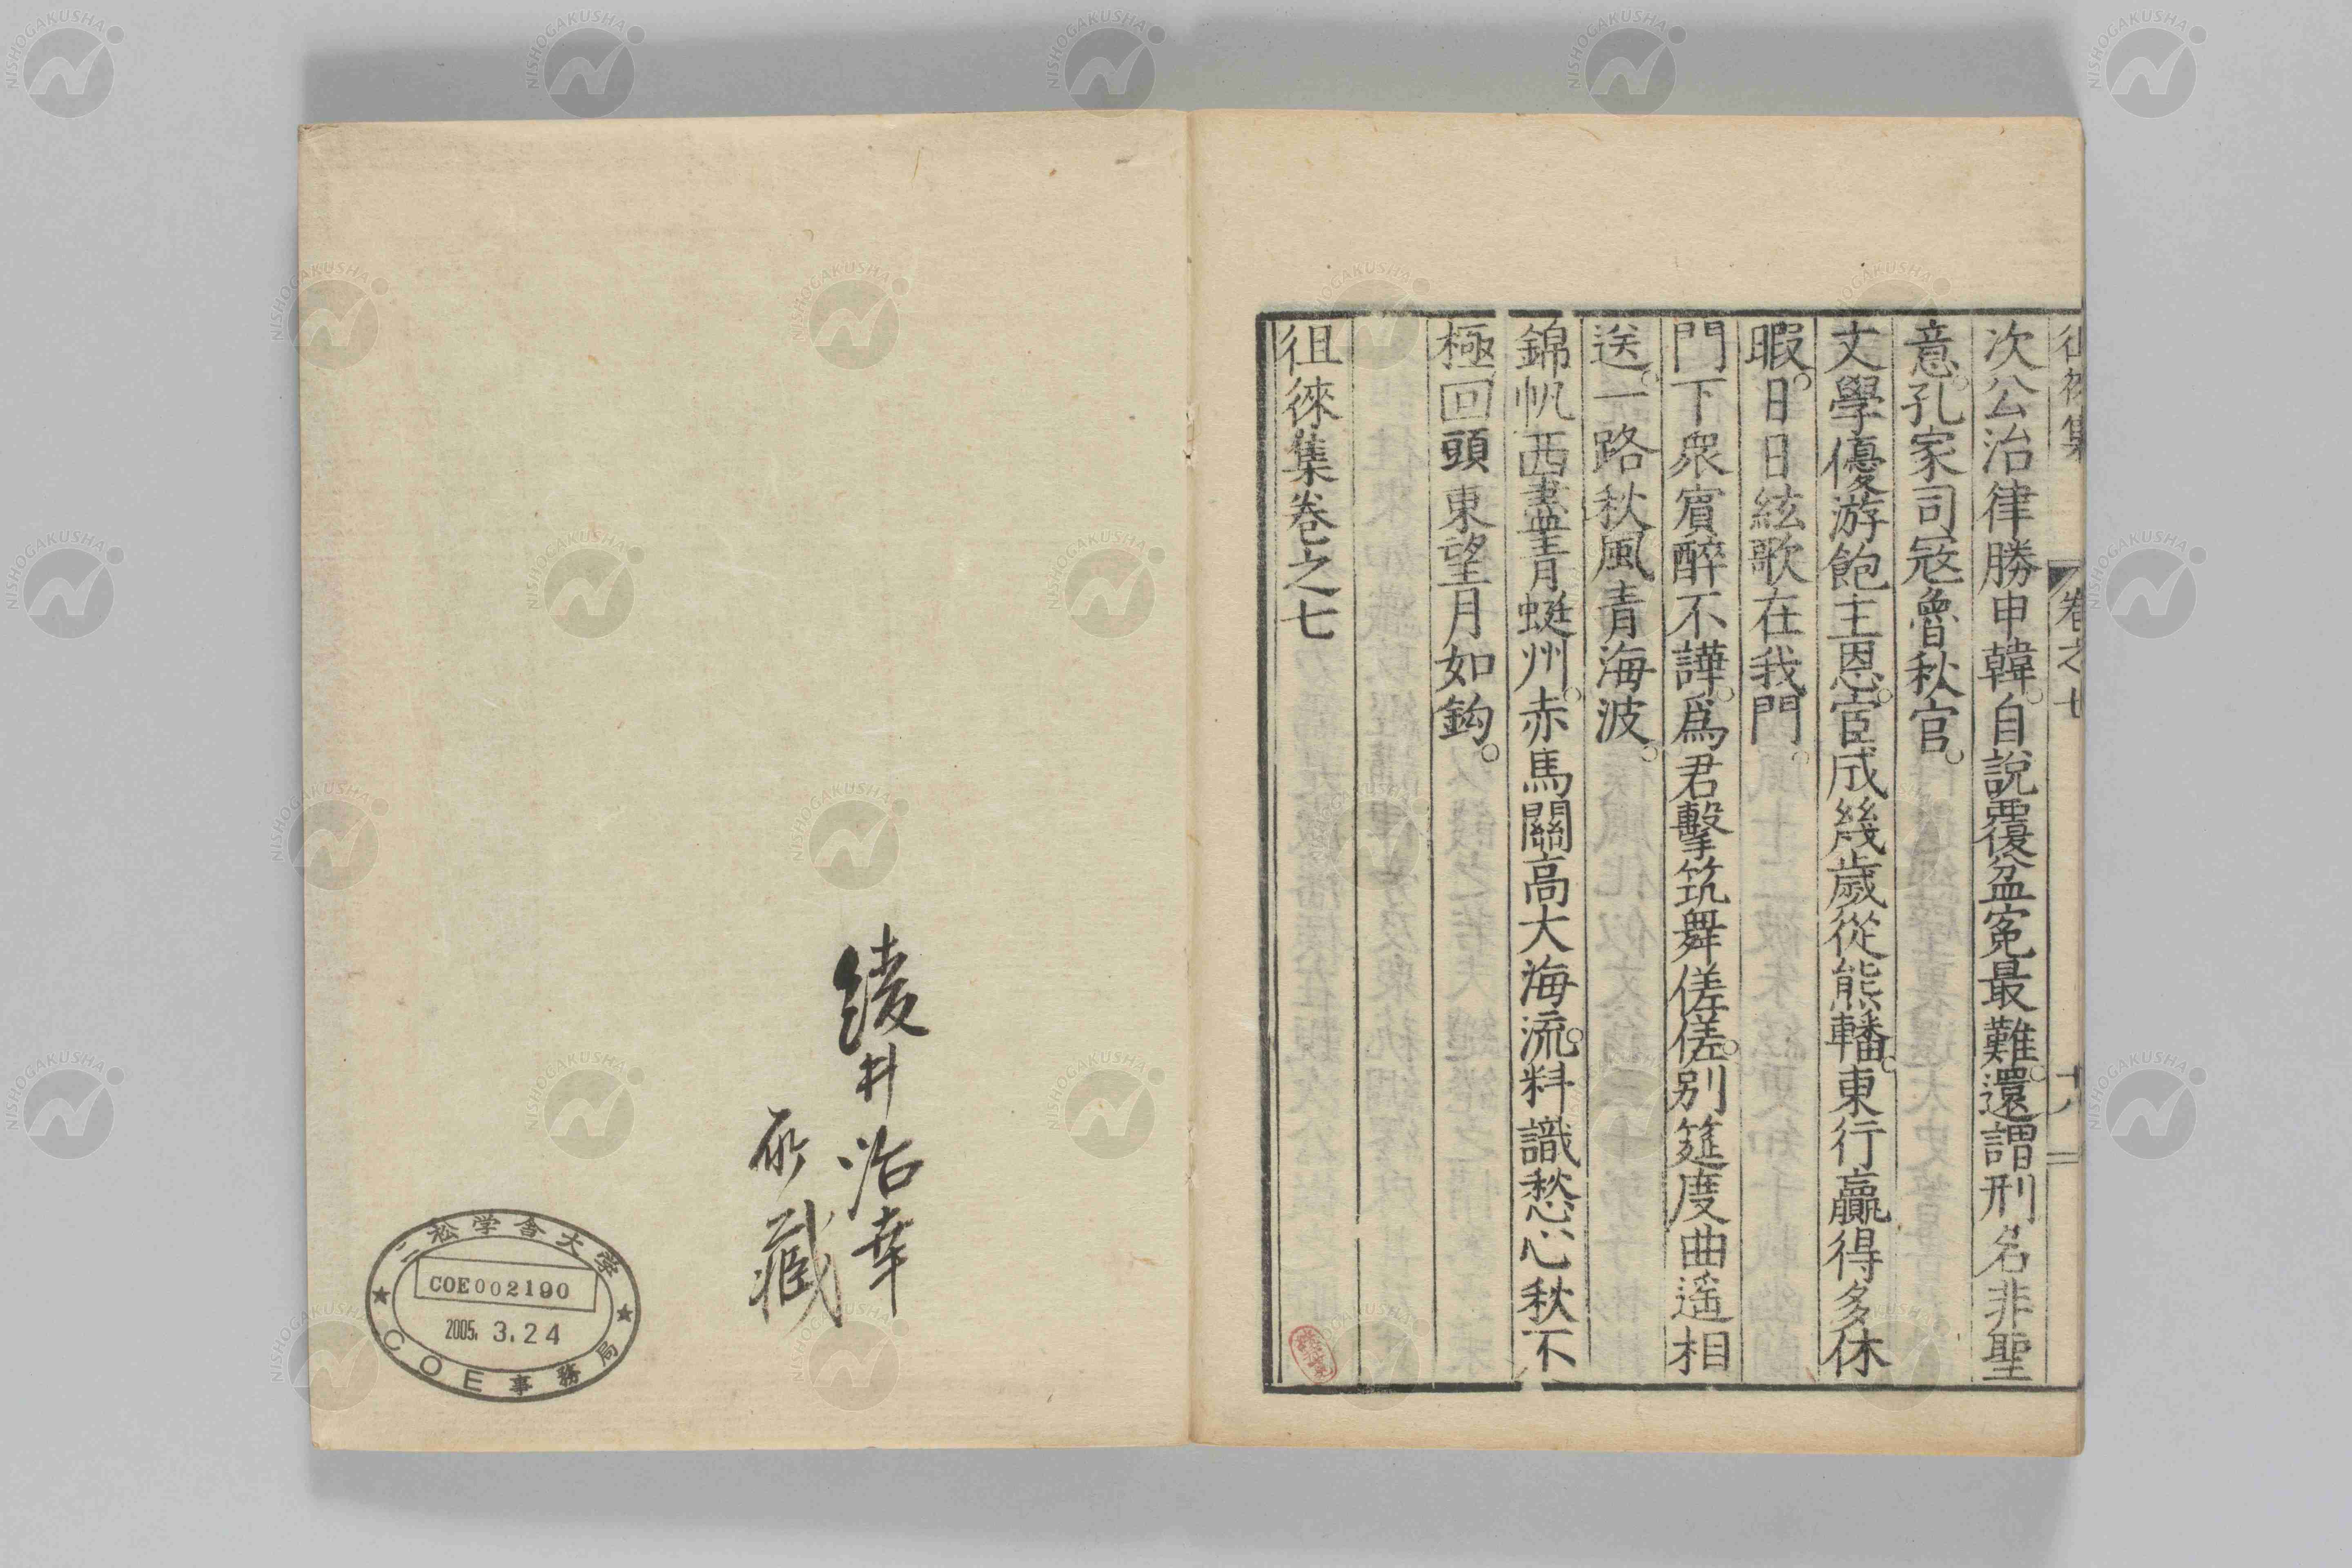 次公治律勝申韓。自說覆盆寃最難。還謂刑名非聖
意。孔家司寇魯秋官。
文學優游飽主恩。宦成幾歲從熊轓。東行贏得多休
暇。日日絃歌在我門。
門下衆賓醉不譁。爲君擊筑舞傞傞。別筵度曲遙相
送。一路秋風青海波。
錦帆西盡青蜓州。赤馬關高大海流。料識愁心秋不
極。回頭東望月如鈎。
徂徠集卷之七
綾井治幸
所藏
二松学舎大学
COE002190
2005. 3.24
COE事務局
NISHOGAKUSHA